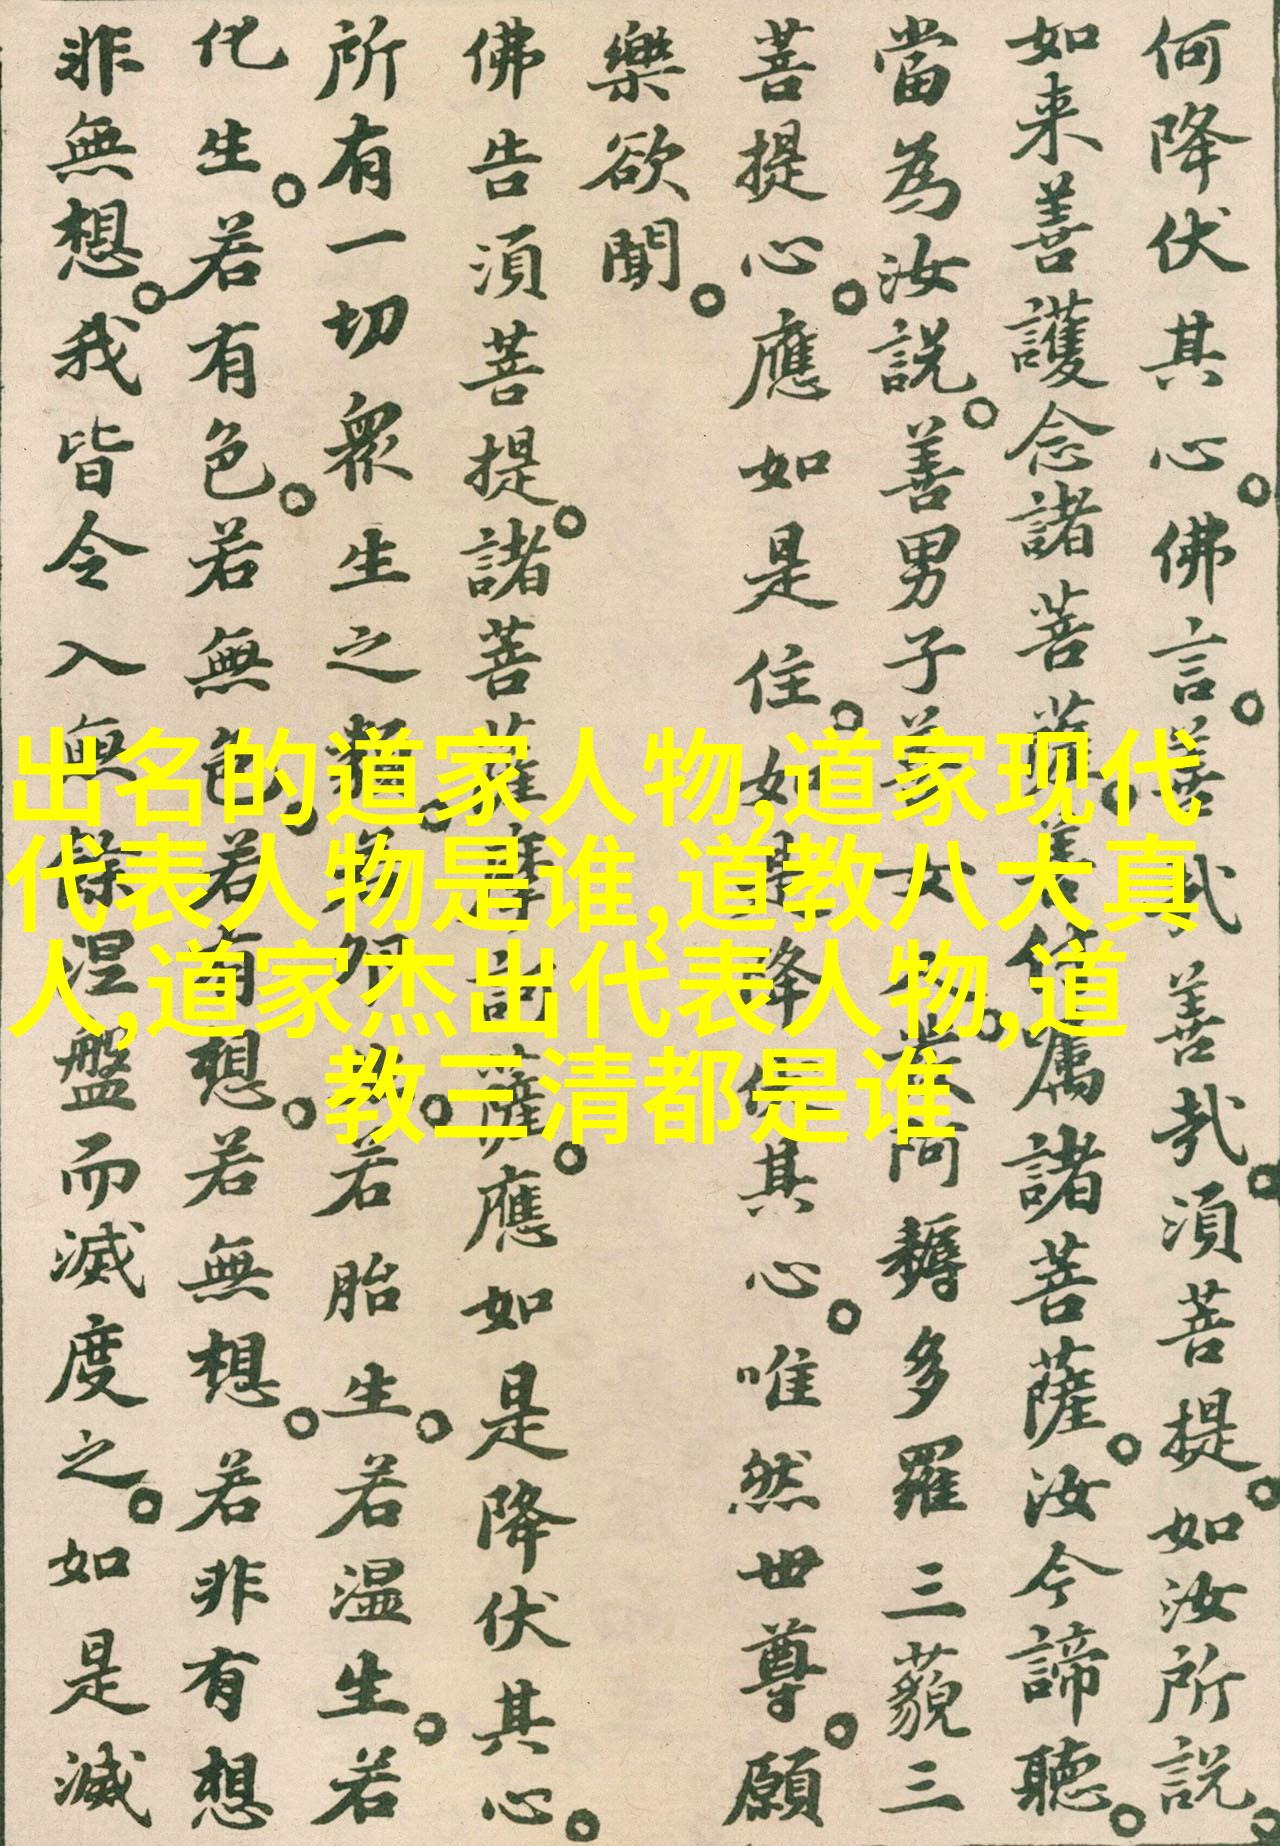 何降伏其心。佛言。善哉善哉。須菩提。如汝所說。
如来善護念諸菩薩。善付属諸菩薩。汝今諦聽。
當為汝説。善男子善女人。發阿耨多羅三藐三
菩提心。應如是住。如是降伏其心。唯然世尊。願
樂欲聞。
佛告須菩提。諸菩薩摩訶薩。應如是降伏其心。
所有一切衆生之類。若卵生。若胎生。若温生。若
化生。若有色。若無色。若有想。若無想。若非有想
非無想。我皆令入無餘涅盤而滅度之。如是滅
出名的道家人物,道家现代
代表人物是谁,道教八大真
人,道家杰出代表人物,道
教三清都是谁